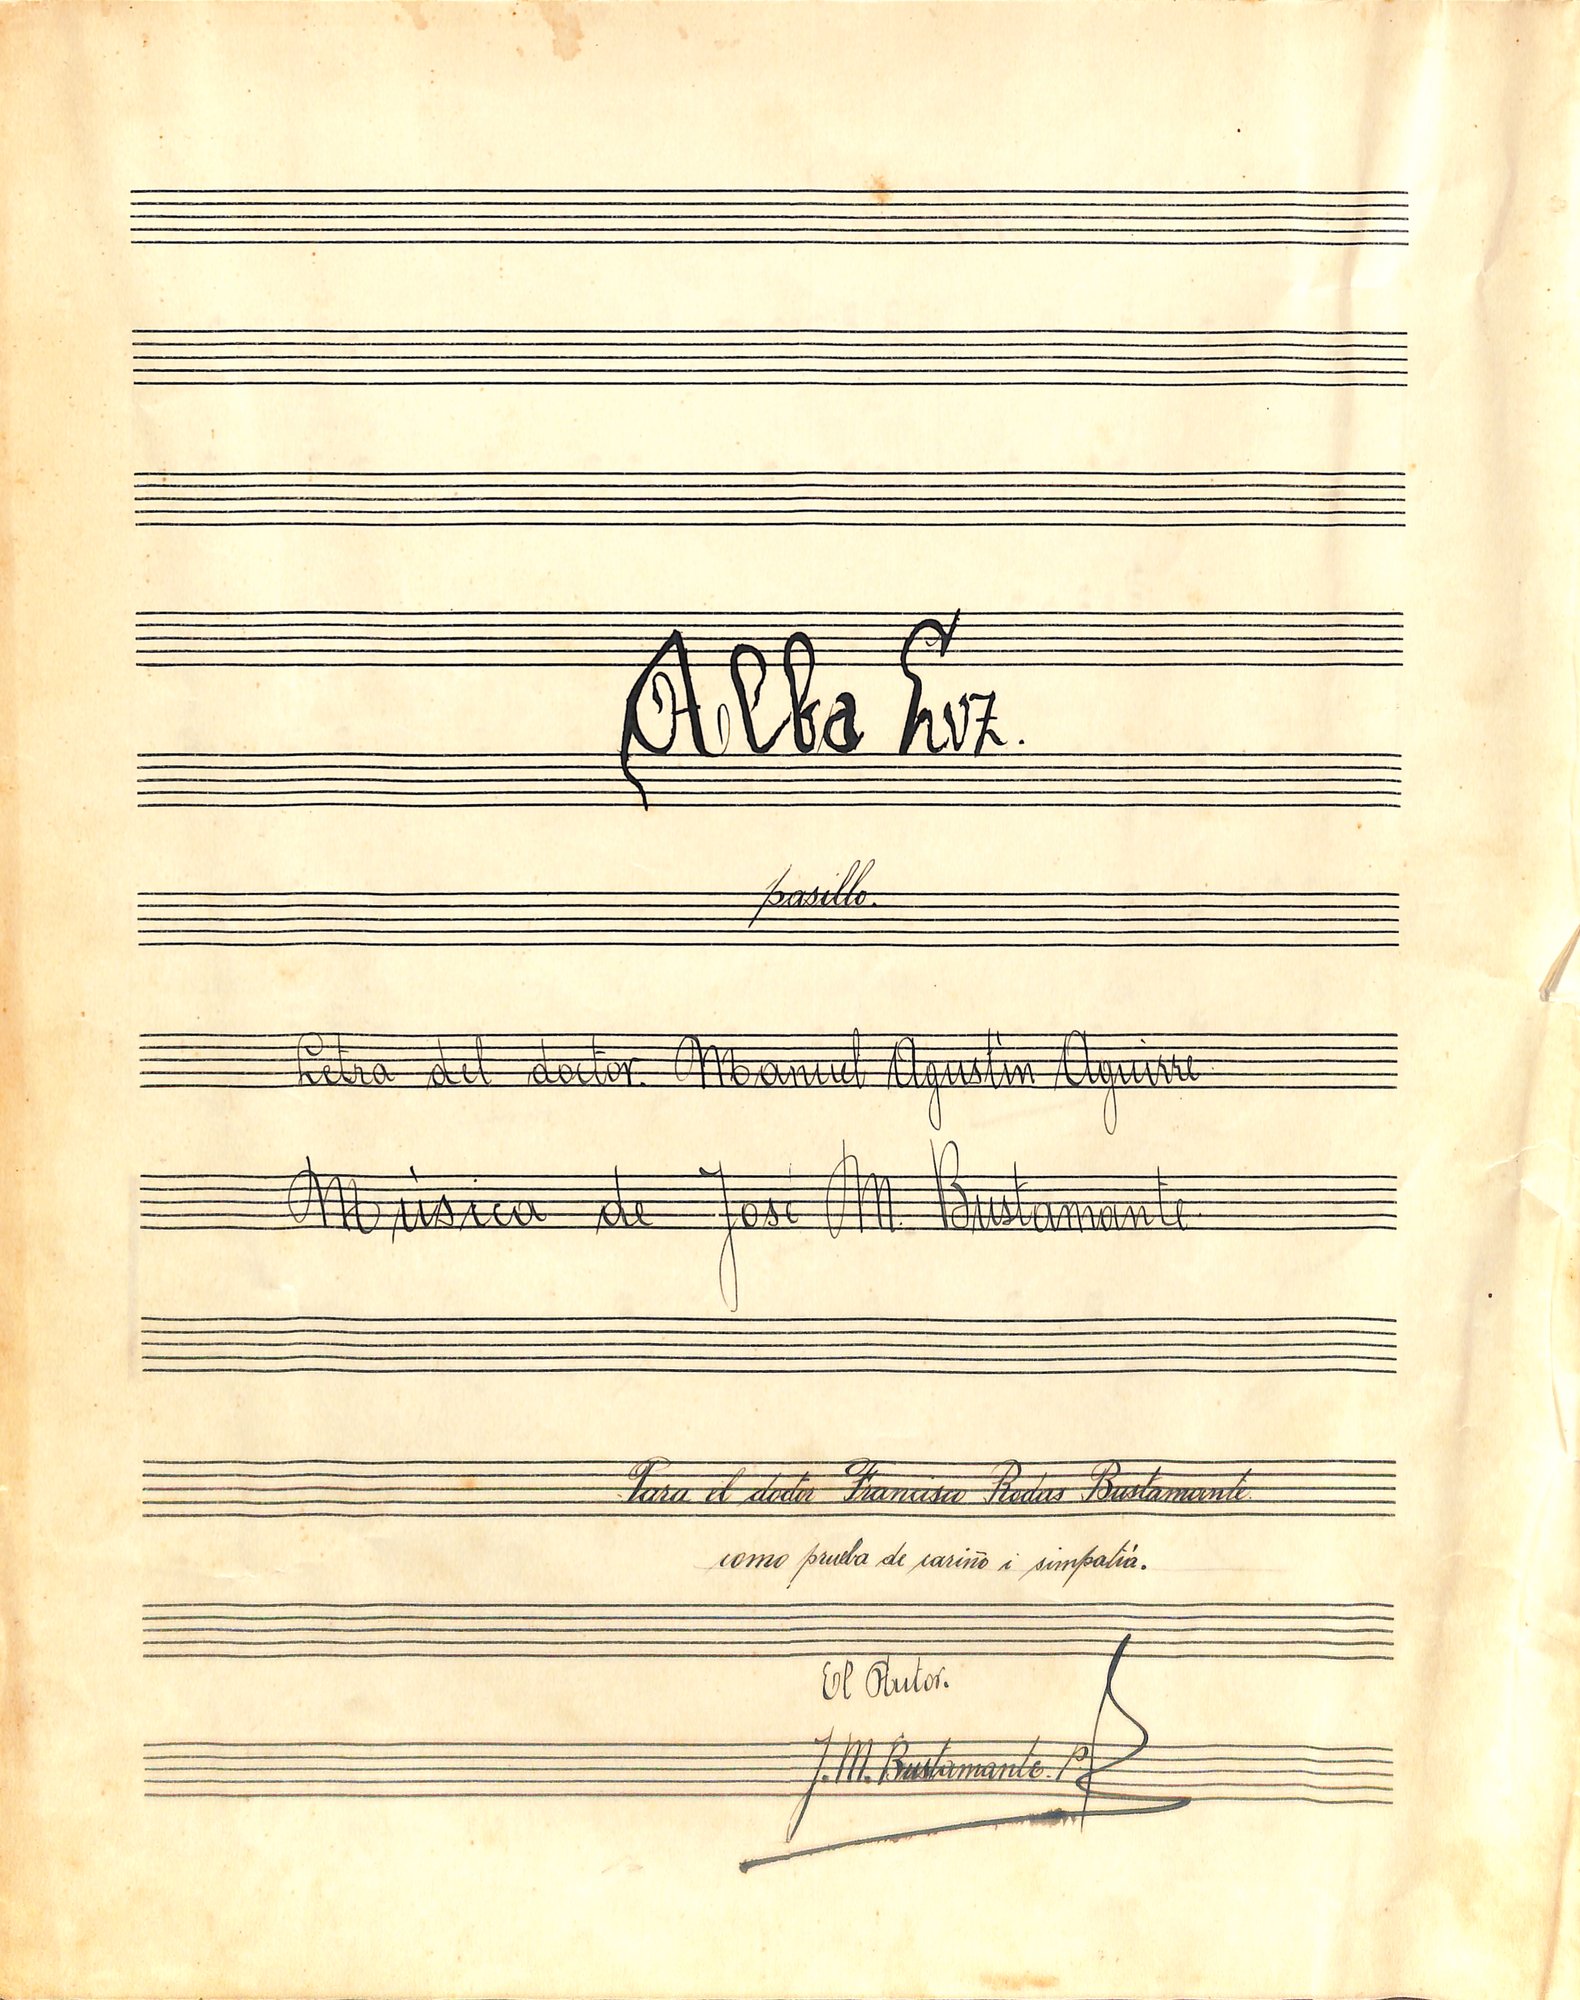 Alba Luz.
pasillo.
Letra del doctor. Manuel Agustín Aguirre
Música de José M. Bustamante.
Para el doctor Francisco Rodas Bustamante.
como prueba de cariño i simpatía.
El Autor.
J. M. Bustamante. P